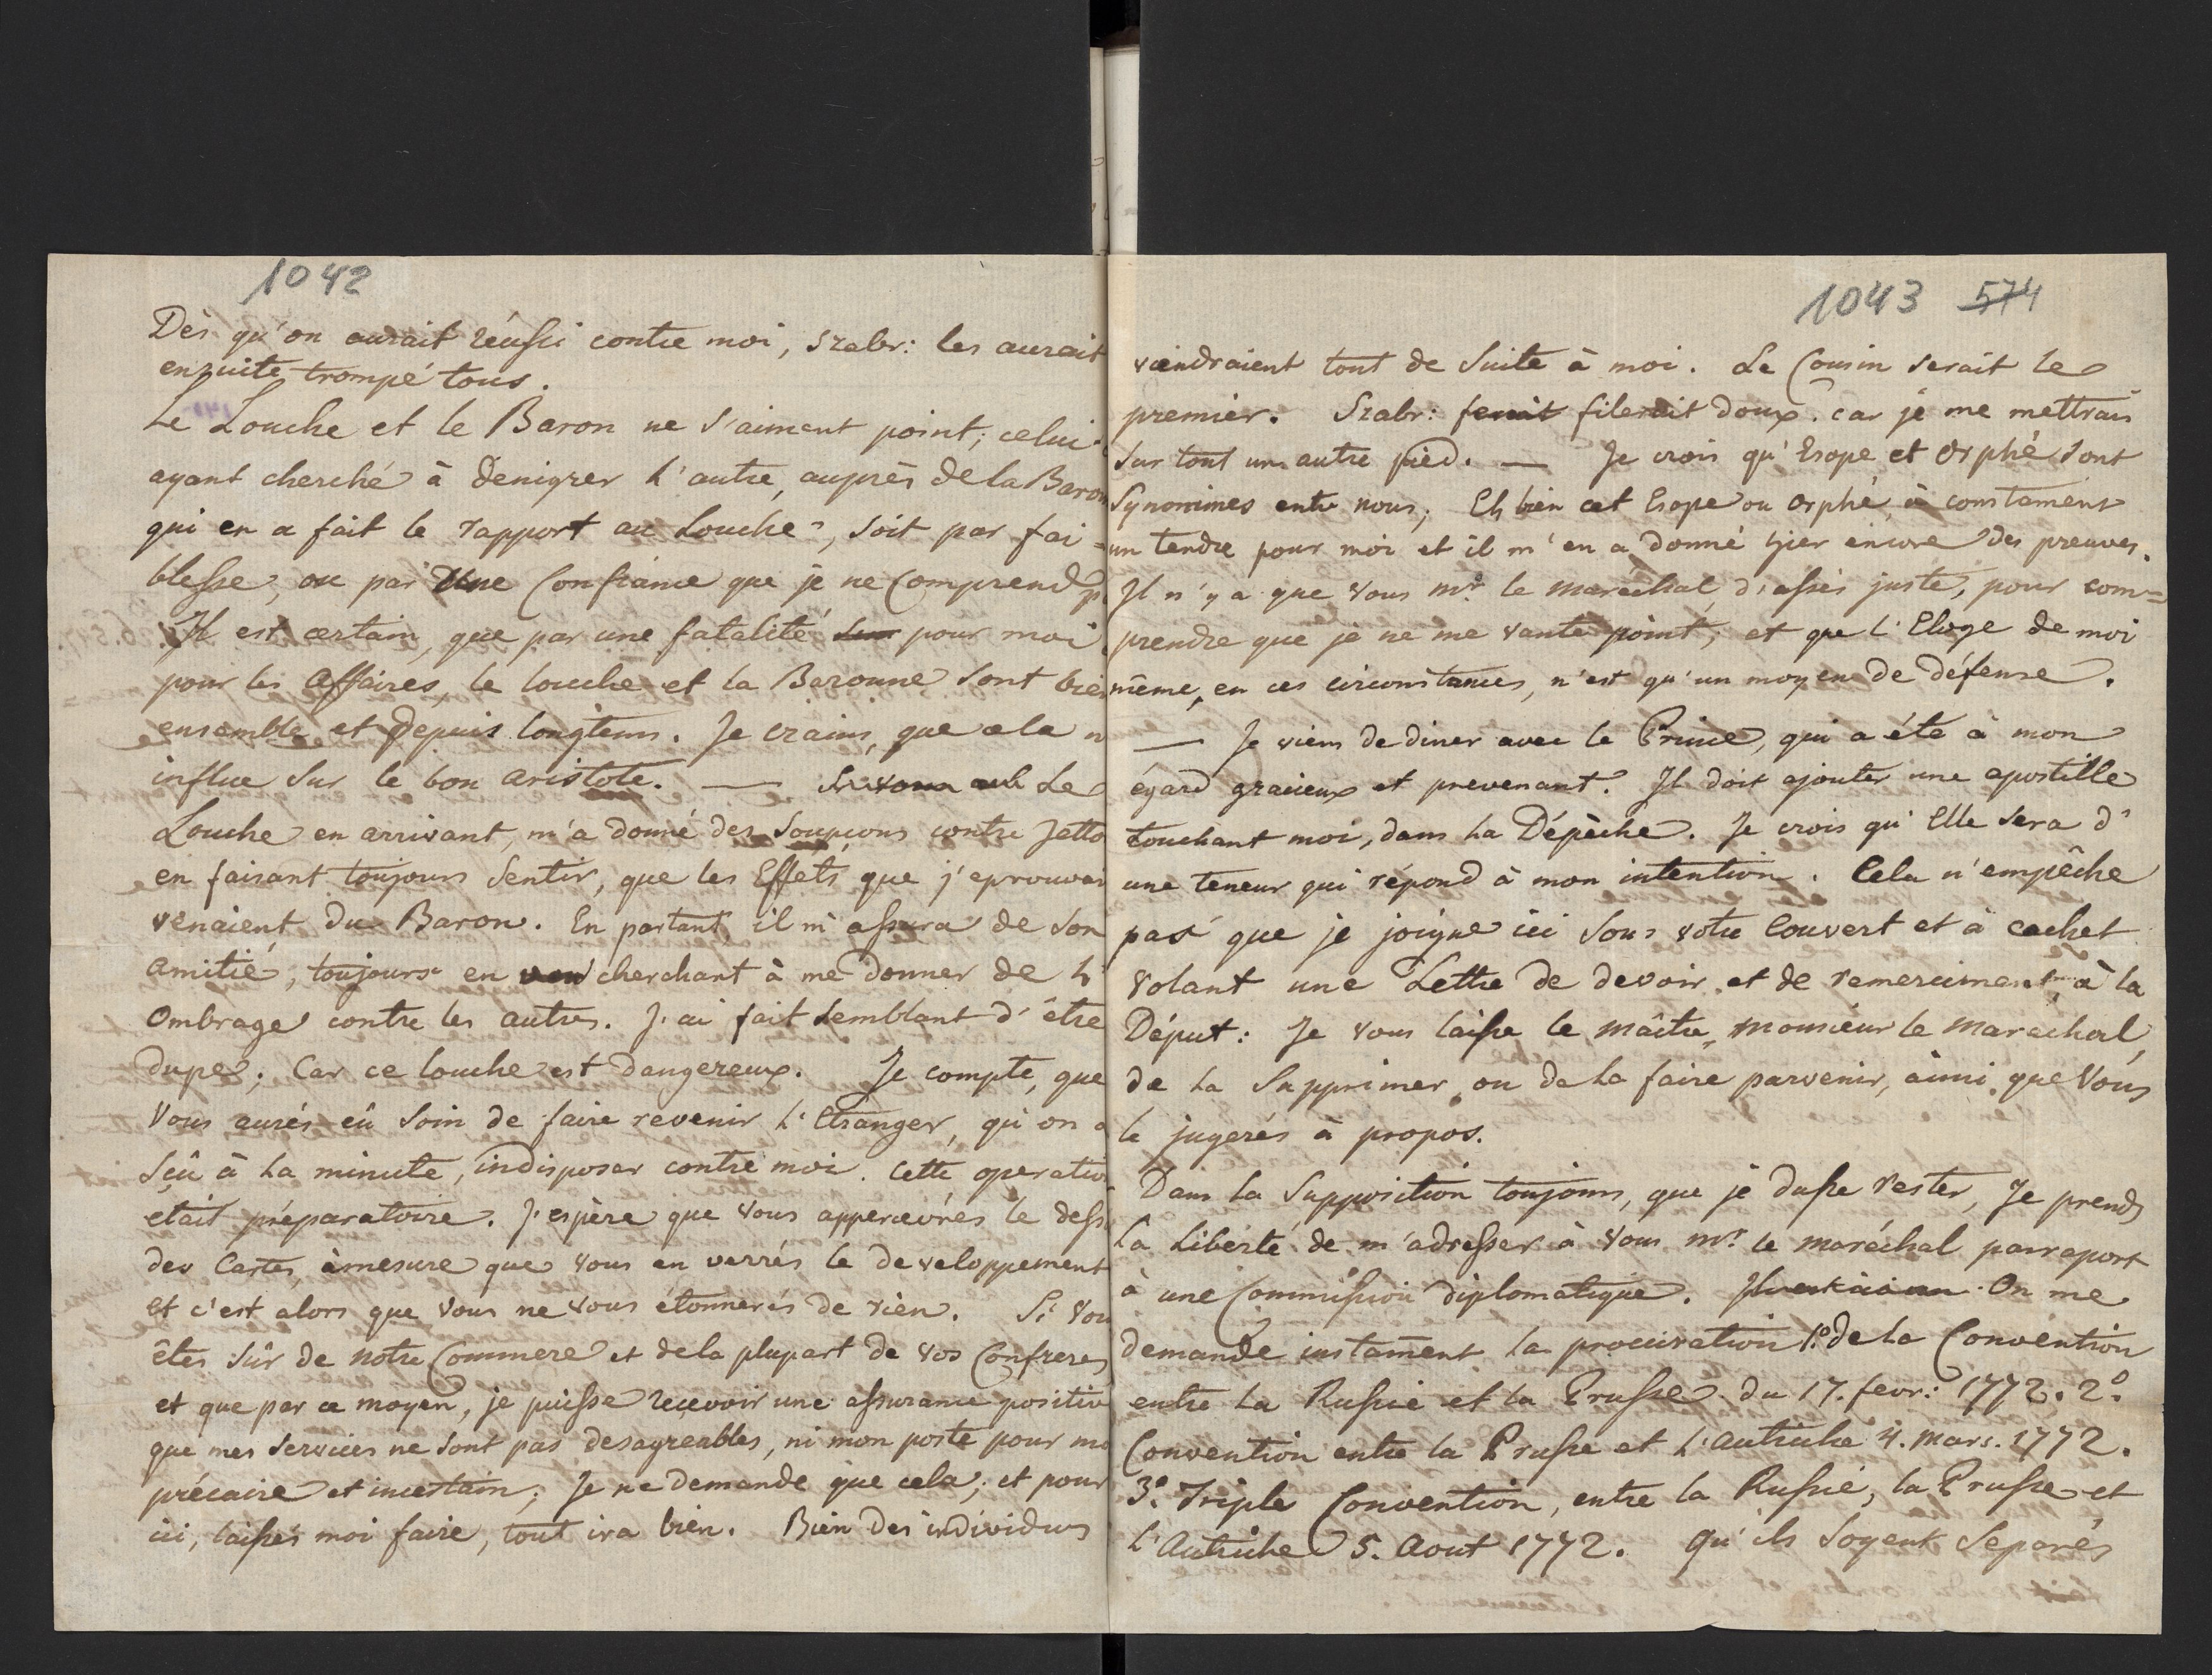 1042
Dès qu'on aurait réussi contre moi, Szabr: les aurait
ensuite trompé tous.
Le Louche et le Baron ne s'aiment point; celui-
ayant cherché à denigrer l'autre, auprès de la Baron
qui en a fait le rapport au Louche, soit par fai=
blesse, ou par une Confiance que je ne comprend p
Il est certain, que par une fatalité pour moi
pour les Affaires, le louche et la Baronne sont bien
ensemble et depuis longtems. Je crains, que cela n
influe sur le bon aristote. — Le
Louche en arrivant, m'a donné des Soupçons contre Jatto
en faisant toujours sentir, que les Effets que j'eprouvai
venaient du Baron. En partant il m'assura de son
amitié, toujours en cherchant à me donner de l'
Ombrage contre les autres. J'ai fait semblant d'être
dupe; Car ce louche est dangereux. Je compte, que
Vous aurés eû soin de faire revenir l'Etranger, qu'on a
sçû à la minute, indisposer contre moi. Cette operatio
etait préparatoire. J'espère que vous appercevrés le dess
des Cartes, àmesure que vous en verrés le developpement
et c'est alors que vous ne vous étonnerés de rien. Si vou
êtes sûr de notre Commere et dela plupart de vos Confreres
et que par ce moyen, je puisse recevoir une assurance positiv
que mes services ne sont pas desagreables, ni mon poste pour mo
précaire et incertain; Je ne demande que cela; et pour
ici, laissés moi faire, tout ira bien. Bien des individus
1043 574
viendraient tout de suite à moi. Le Cousin serait le
premier. Szabr: ferait filerait doux. car je me mettrais
sur tout un autre pied. — Je crois qu'Esope et Orphé sont
Synonimes entre nous; Eh bien cet Esope ou Orphé, à constament
un tendre pour moi et il m'en a donné hier encore des preuves.
Il n'y a que vous mr le marechal, d'assés juste, pour com=
prendre que je ne me vante point; et que l'Eloge de moi
même, en ces circonstances, n'est qu'un moyen de défense.
— Je viens de diner avec le Prince, qui a été à mon
égard gracieux et prevenant. Il doit ajouter une apostille
touchant moi, dans la Dépêche. Je crois qu'Elle sera d'
une teneur qui répond à mon intention. Cela n'empêche
pas que je joigne ici sous votre Couvert et à cachet
volant une Lettre de devoir et de remerciment, à la
Déput: Je vous laisse le maître, monsieur le marechal,
de la Supprimer, ou de la faire parvenir, ainsi que Vous
le jugerés à propos.
Dans la Supposition toujours, que je dusse rester, Je prends
la liberté de m'adresser à vous mr. le maréchal parraport
à une Commission diplomatique. On me
demande instament la procuration 1º. de la Convention
entre la Russie et la Prusse du 17. fevr: 1772. 2º.
Convention entre la Prusse et l'Autriche 4. mars. 1772.
3º. Triple Convention, entre la Russie, la Prusse et
l'Autriche 5. Aout 1772. qu'ils soyent Separés